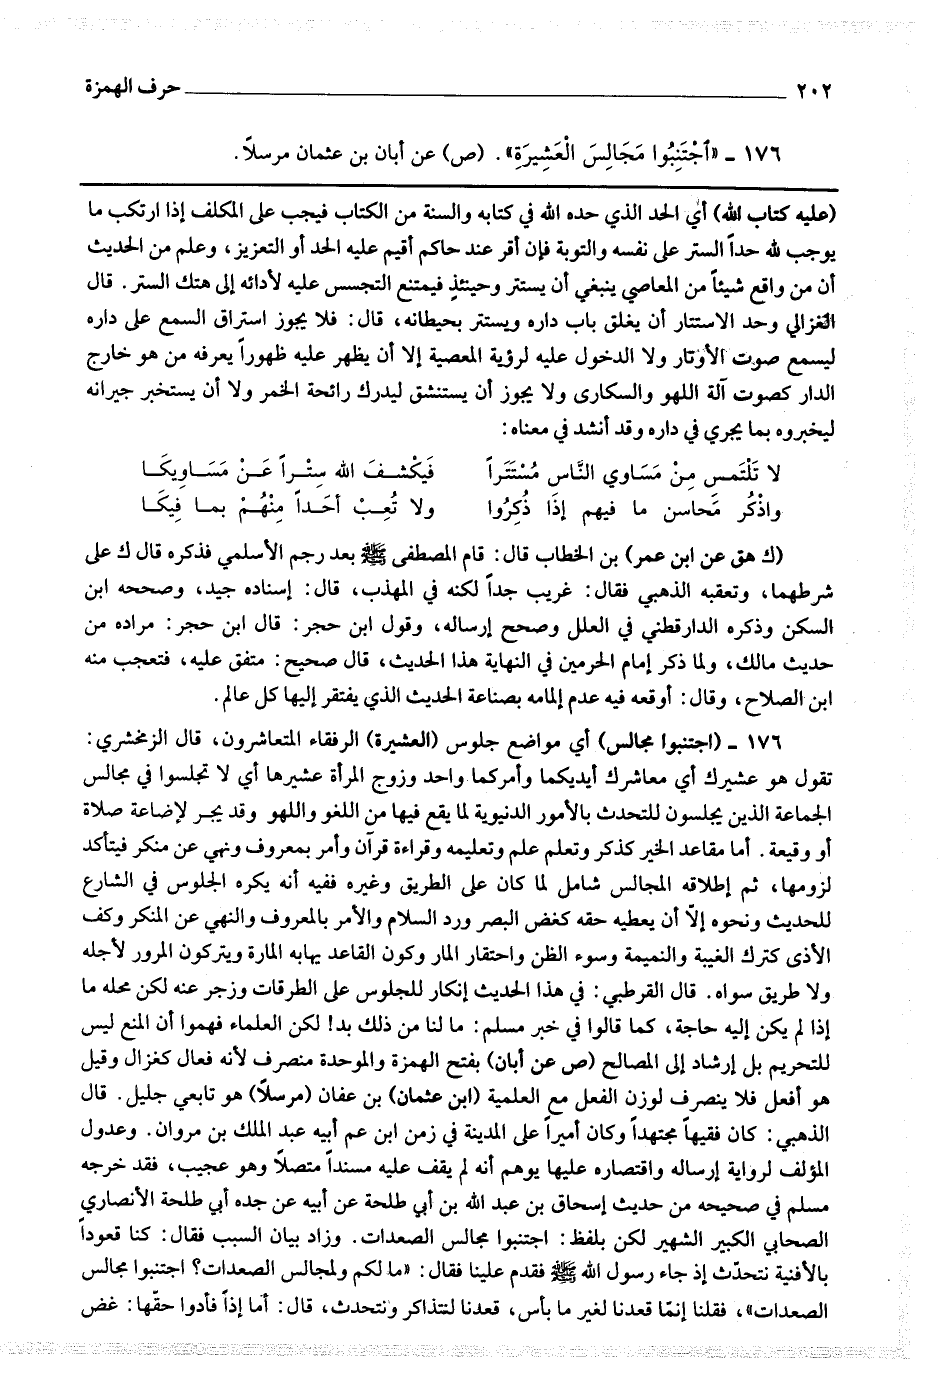 ٢٠٢ ــــــ حرف الهمزة
١٧٦ ـ «ٱجْتَنِبُوا مَجَالِسَ الْعَشِيرَةِ». (ص) عن أبان بن عثمان مرسلاً.
(عليه كتاب الله) أي الحد الذي حده الله في كتابه والسنة من الكتاب فيجب على المكلف إذا ارتكب ما
يوجب لله حداً الستر على نفسه والتوبة فإن أقر عند حاكم أقيم عليه الحد أو التعزير، وعلم من الحديث
أن من واقع شيئاً من المعاصي ينبغي أن يستتر وحينئذٍ فيمتنع التجسس عليه لأدائه إلى هتك الستر. قال
الغزالي وحد الاستتار أن يغلق باب داره ويستتر بحيطانه، قال: فلا يجوز استراق السمع على داره
ليسمع صوت الأوتار ولا الدخول عليه لرؤية المعصية إلا أن يظهر عليه ظهوراً يعرفه من هو خارج
الدار كصوت آلة اللهو والسكارى ولا يجوز أن يستنشق ليدرك رائحة الخمر ولا أن يستخبر جيرانه
ليخبروه بما يجري في داره وقد أنشد في معناه:
لا تَلْتَمس مِنْ مَسَاوي النَّاس مُسْتَتَراً فَيَكْشفَ الله سِتْراً عَنْ مَسَاويكَا
واذْكُر مَحاسن ما فيهم إذَا ذُكِرُوا ولا تُعِبْ أحَداً مِنْهُمْ بما فِيكَا
(ك هق عن ابن عمر) بن الخطاب قال: قام المصطفى ﷺ بعد رجم الأسلمي فذكره قال ك على
شرطهما، وتعقبه الذهبي فقال: غريب جداً لكنه في المهذب، قال: إسناده جيد، وصححه ابن
السكن وذكره الدارقطني في العلل وصحح إرساله، وقول ابن حجر: قال ابن حجر: مراده من
حديث مالك، ولما ذكر إمام الحرمين في النهاية هذا الحديث، قال صحيح: متفق عليه، فتعجب منه
ابن الصلاح، وقال: أوقعه فيه عدم إلمامه بصناعة الحديث الذي يفتقر إليها كل عالم.
١٧٦ ـ (اجتنبوا مجالس) أي مواضع جلوس (العشيرة) الرفقاء المتعاشرون، قال الزمخشري:
تقول هو عشيرك أي معاشرك أيديكما وأمركما واحد وزوج المرأة عشيرها أي لا تجلسوا في مجالس
الجماعة الذين يجلسون للتحدث بالأمور الدنيوية لما يقع فيها من اللغو واللهو وقد يجر لإضاعة صلاة
أو وقيعة. أما مقاعد الخير كذكر وتعلم علم وتعليمه وقراءة قرآن وأمر بمعروف ونهي عن منكر فيتأكد
لزومها، ثم إطلاقه المجالس شامل لما كان على الطريق وغيره ففيه أنه يكره الجلوس في الشارع
للحديث ونحوه إلاّ أن يعطيه حقه كغض البصر ورد السلام والأمر بالمعروف والنهي عن المنكر وكف
الأذى كترك الغيبة والنميمة وسوء الظن واحتقار المار وكون القاعد يهابه المارة ويتركون المرور لأجله
ولا طريق سواه. قال القرطبي: في هذا الحديث إنكار للجلوس على الطرقات وزجر عنه لكن محله ما
إذا لم يكن إليه حاجة، كما قالوا في خبر مسلم: ما لنا من ذلك بد! لكن العلماء فهموا أن المنع ليس
للتحريم بل إرشاد إلى المصالح (ص عن أبان) بفتح الهمزة والموحدة منصرف لأنه فعال كغزال وقيل
هو أفعل فلا ينصرف لوزن الفعل مع العلمية (ابن عثمان) بن عفان (مرسلاً) هو تابعي جليل. قال
الذهبي: كان فقيهاً مجتهداً وكان أميراً على المدينة في زمن ابن عم أبيه عبد الملك بن مروان. وعدول
المؤلف لرواية إرساله واقتصاره عليها يوهم أنه لم يقف عليه مسنداً متصلاً وهو عجيب، فقد خرجه
مسلم في صحيحه من حديث إسحاق بن عبد الله بن أبي طلحة عن أبيه عن جده أبي طلحة الأنصاري
الصحابي الكبير الشهير لكن بلفظ: اجتنبوا مجالس الصعدات. وزاد بيان السبب فقال: كنا قعوداً
بالأفنية نتحدّث إذ جاء رسول الله ﷺ فقدم علينا فقال: «ما لكم ولمجالس الصعدات؟ اجتنبوا مجالس
الصعدات»، فقلنا إنمّا قعدنا لغير ما بأس، قعدنا لنتذاكر ونتحدث، قال: أما إذاً فأدوا حقّها: غض